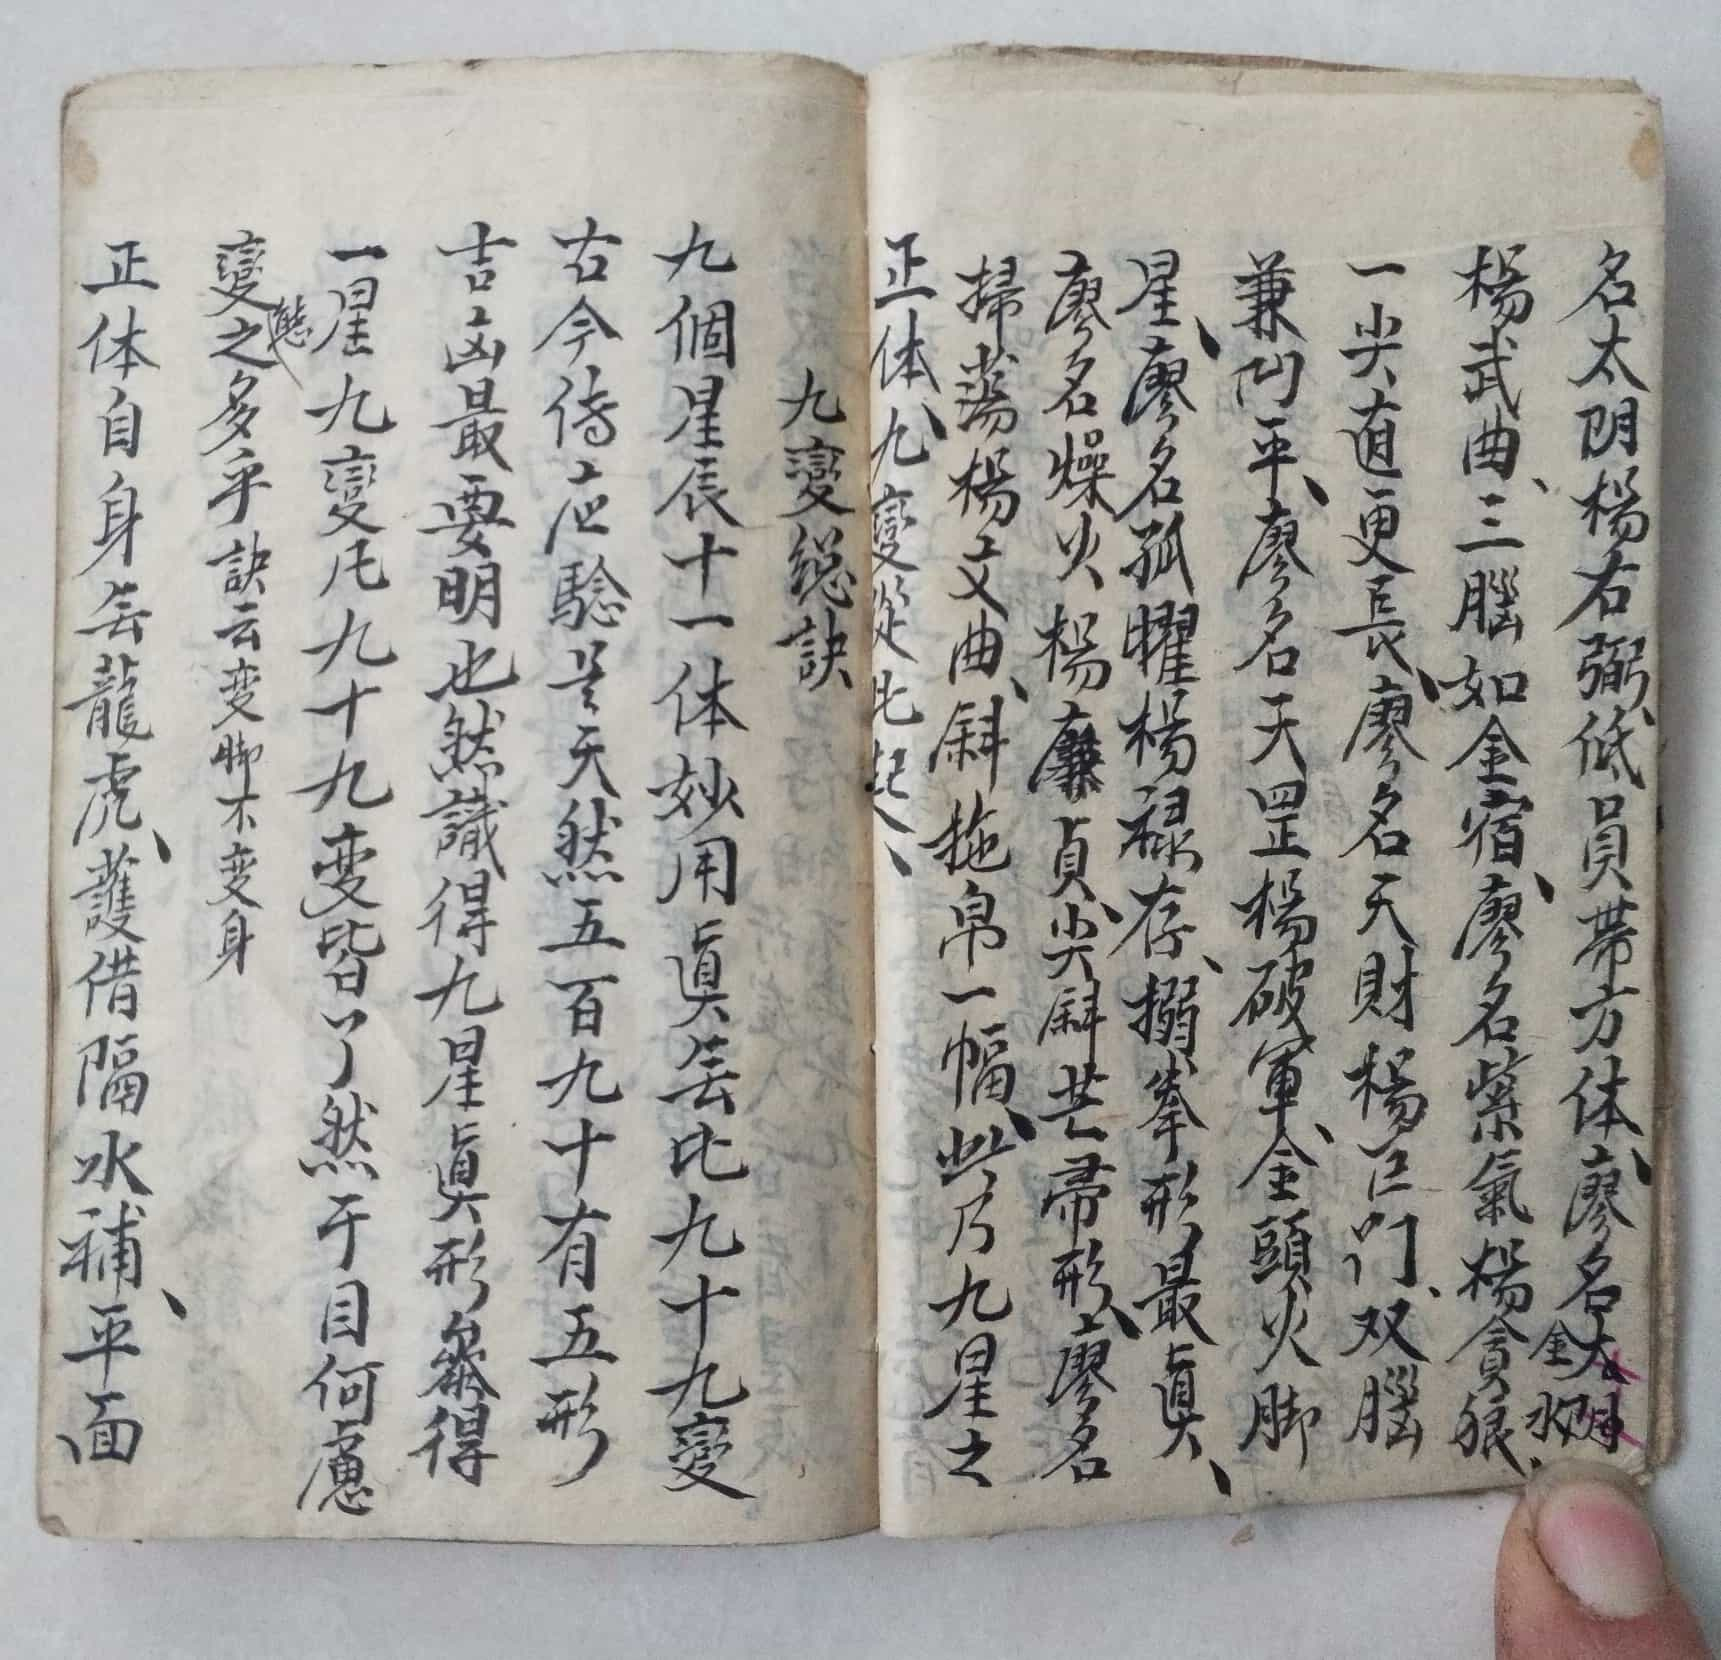 名太阴楊右弼低員帶方体廖名太阴
金水
楊武曲三腦如金宿廖名紫氣楊貪狼
一尖直更長廖名天財楊巨门双腦
兼凹平廖名天罡楊破軍金頭火脚
星廖名孤曜楊禄存搦拳形最眞
廖名燥火楊廉貞尖斜芒帚形廖名
掃蕩楊文曲斜拖帛一幅此乃九星之
正体九變從此起
九變総訣
九個星辰十一体妙用眞芸比九十九變
古今傳应騐是天然五百九十有五形
吉凶最要明也然識得九星眞形叅得
一星九變凡九十九变皆了然于目何慮
變態之多乎訣云变脚不变身
正体自身芸龍虎護借隔水補平面